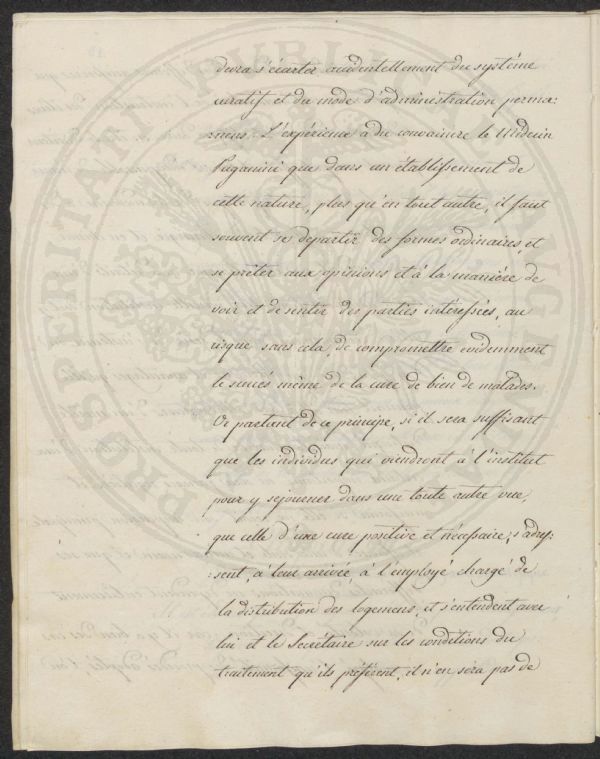 devra s'écarter accidentellement du système
curatif et du mode d'administration perma:
:nens. L'expérience a du convaincre le Médecin
Paganini que dans un établissement de
cette nature, plus qu'en tout autre, il faut
souvent se départir des formes ordinaires, et
se prêter aux opinions et à la manière de
voir et de sentir des parties intéressées, au
risque sans cela, de compromettre evidemment
le succés même de la cure de bien de malades.
Or partant de ce principe, si il sera suffisant
que les individus qui viendront à l'institut
pour y sejourner dans une toute autre vue,
que celle d'une cure positive et nécessaire, s'adres-
:sent, à leur arrivée, à l'employé chargé de
la distribution des logemens, et s'entendent avec
lui et le Secrétaire sur les conditions du
traitement qu'ils préférent, il n'en sera pas de
PROSPERITATI PUBLICAE AUGENDAE